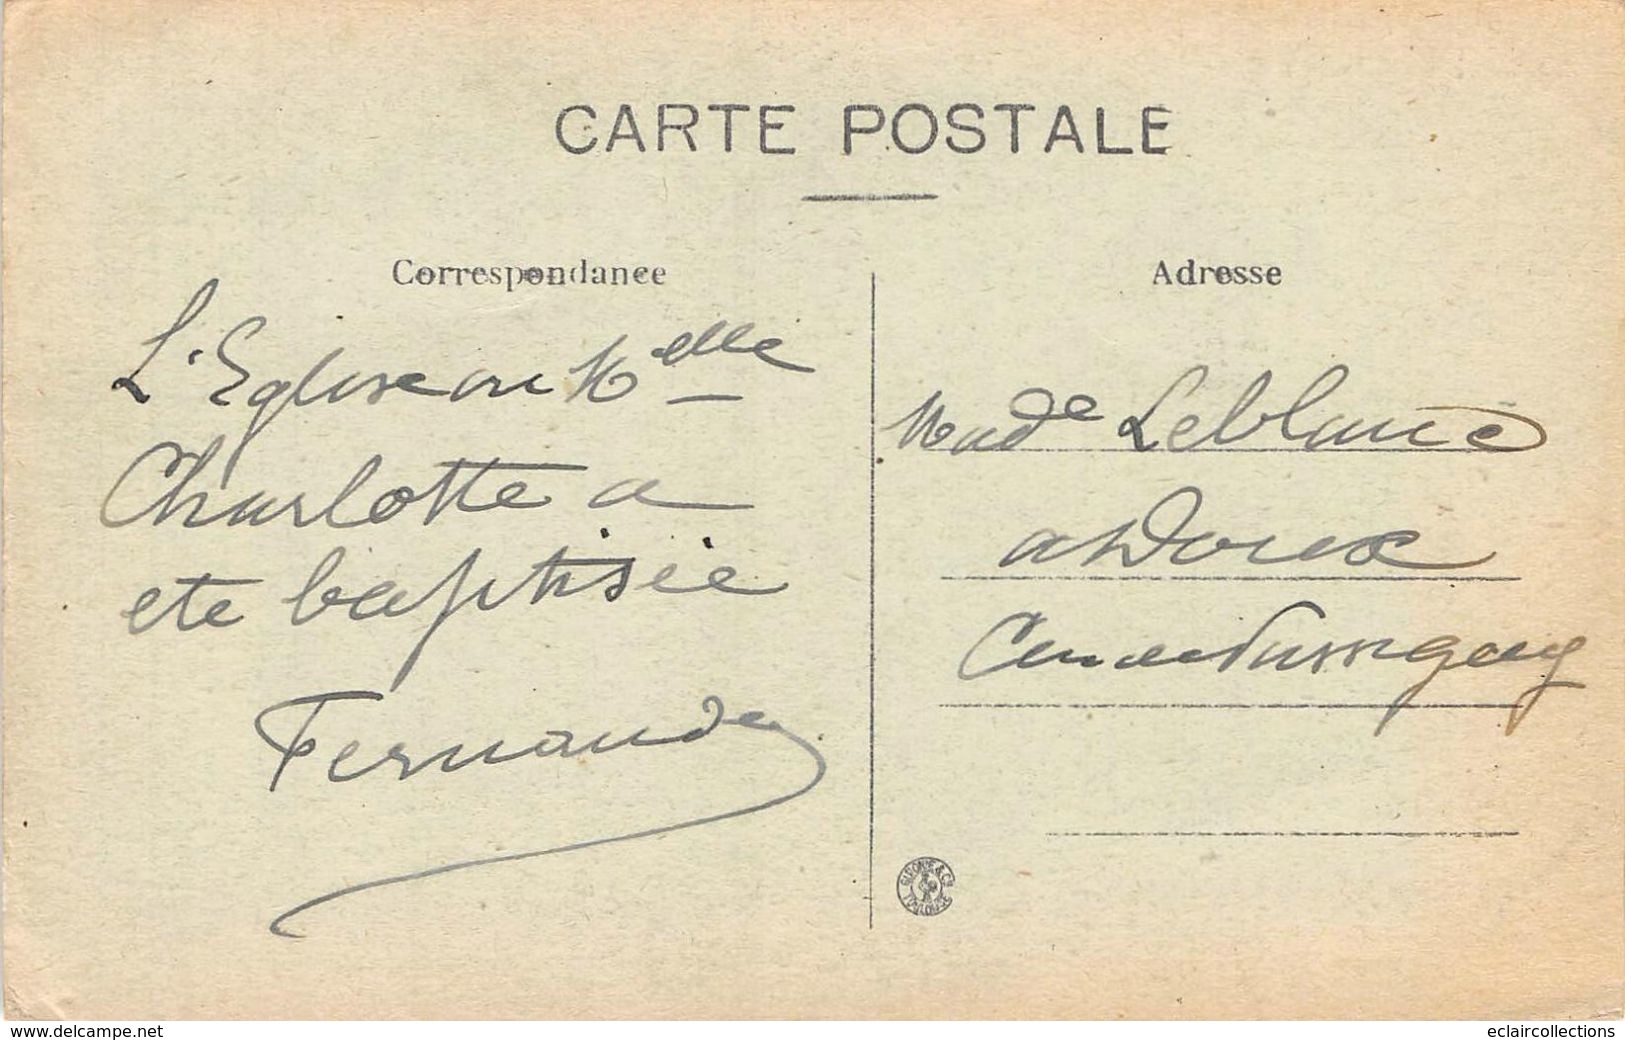 CARTE POSTALE
Correspondance
Adresse
L'Eglise ou Melle
Charlotte a
ete baptisée
Fernande
Made Leblanc
a
www.delcampe.net
eclaircollections